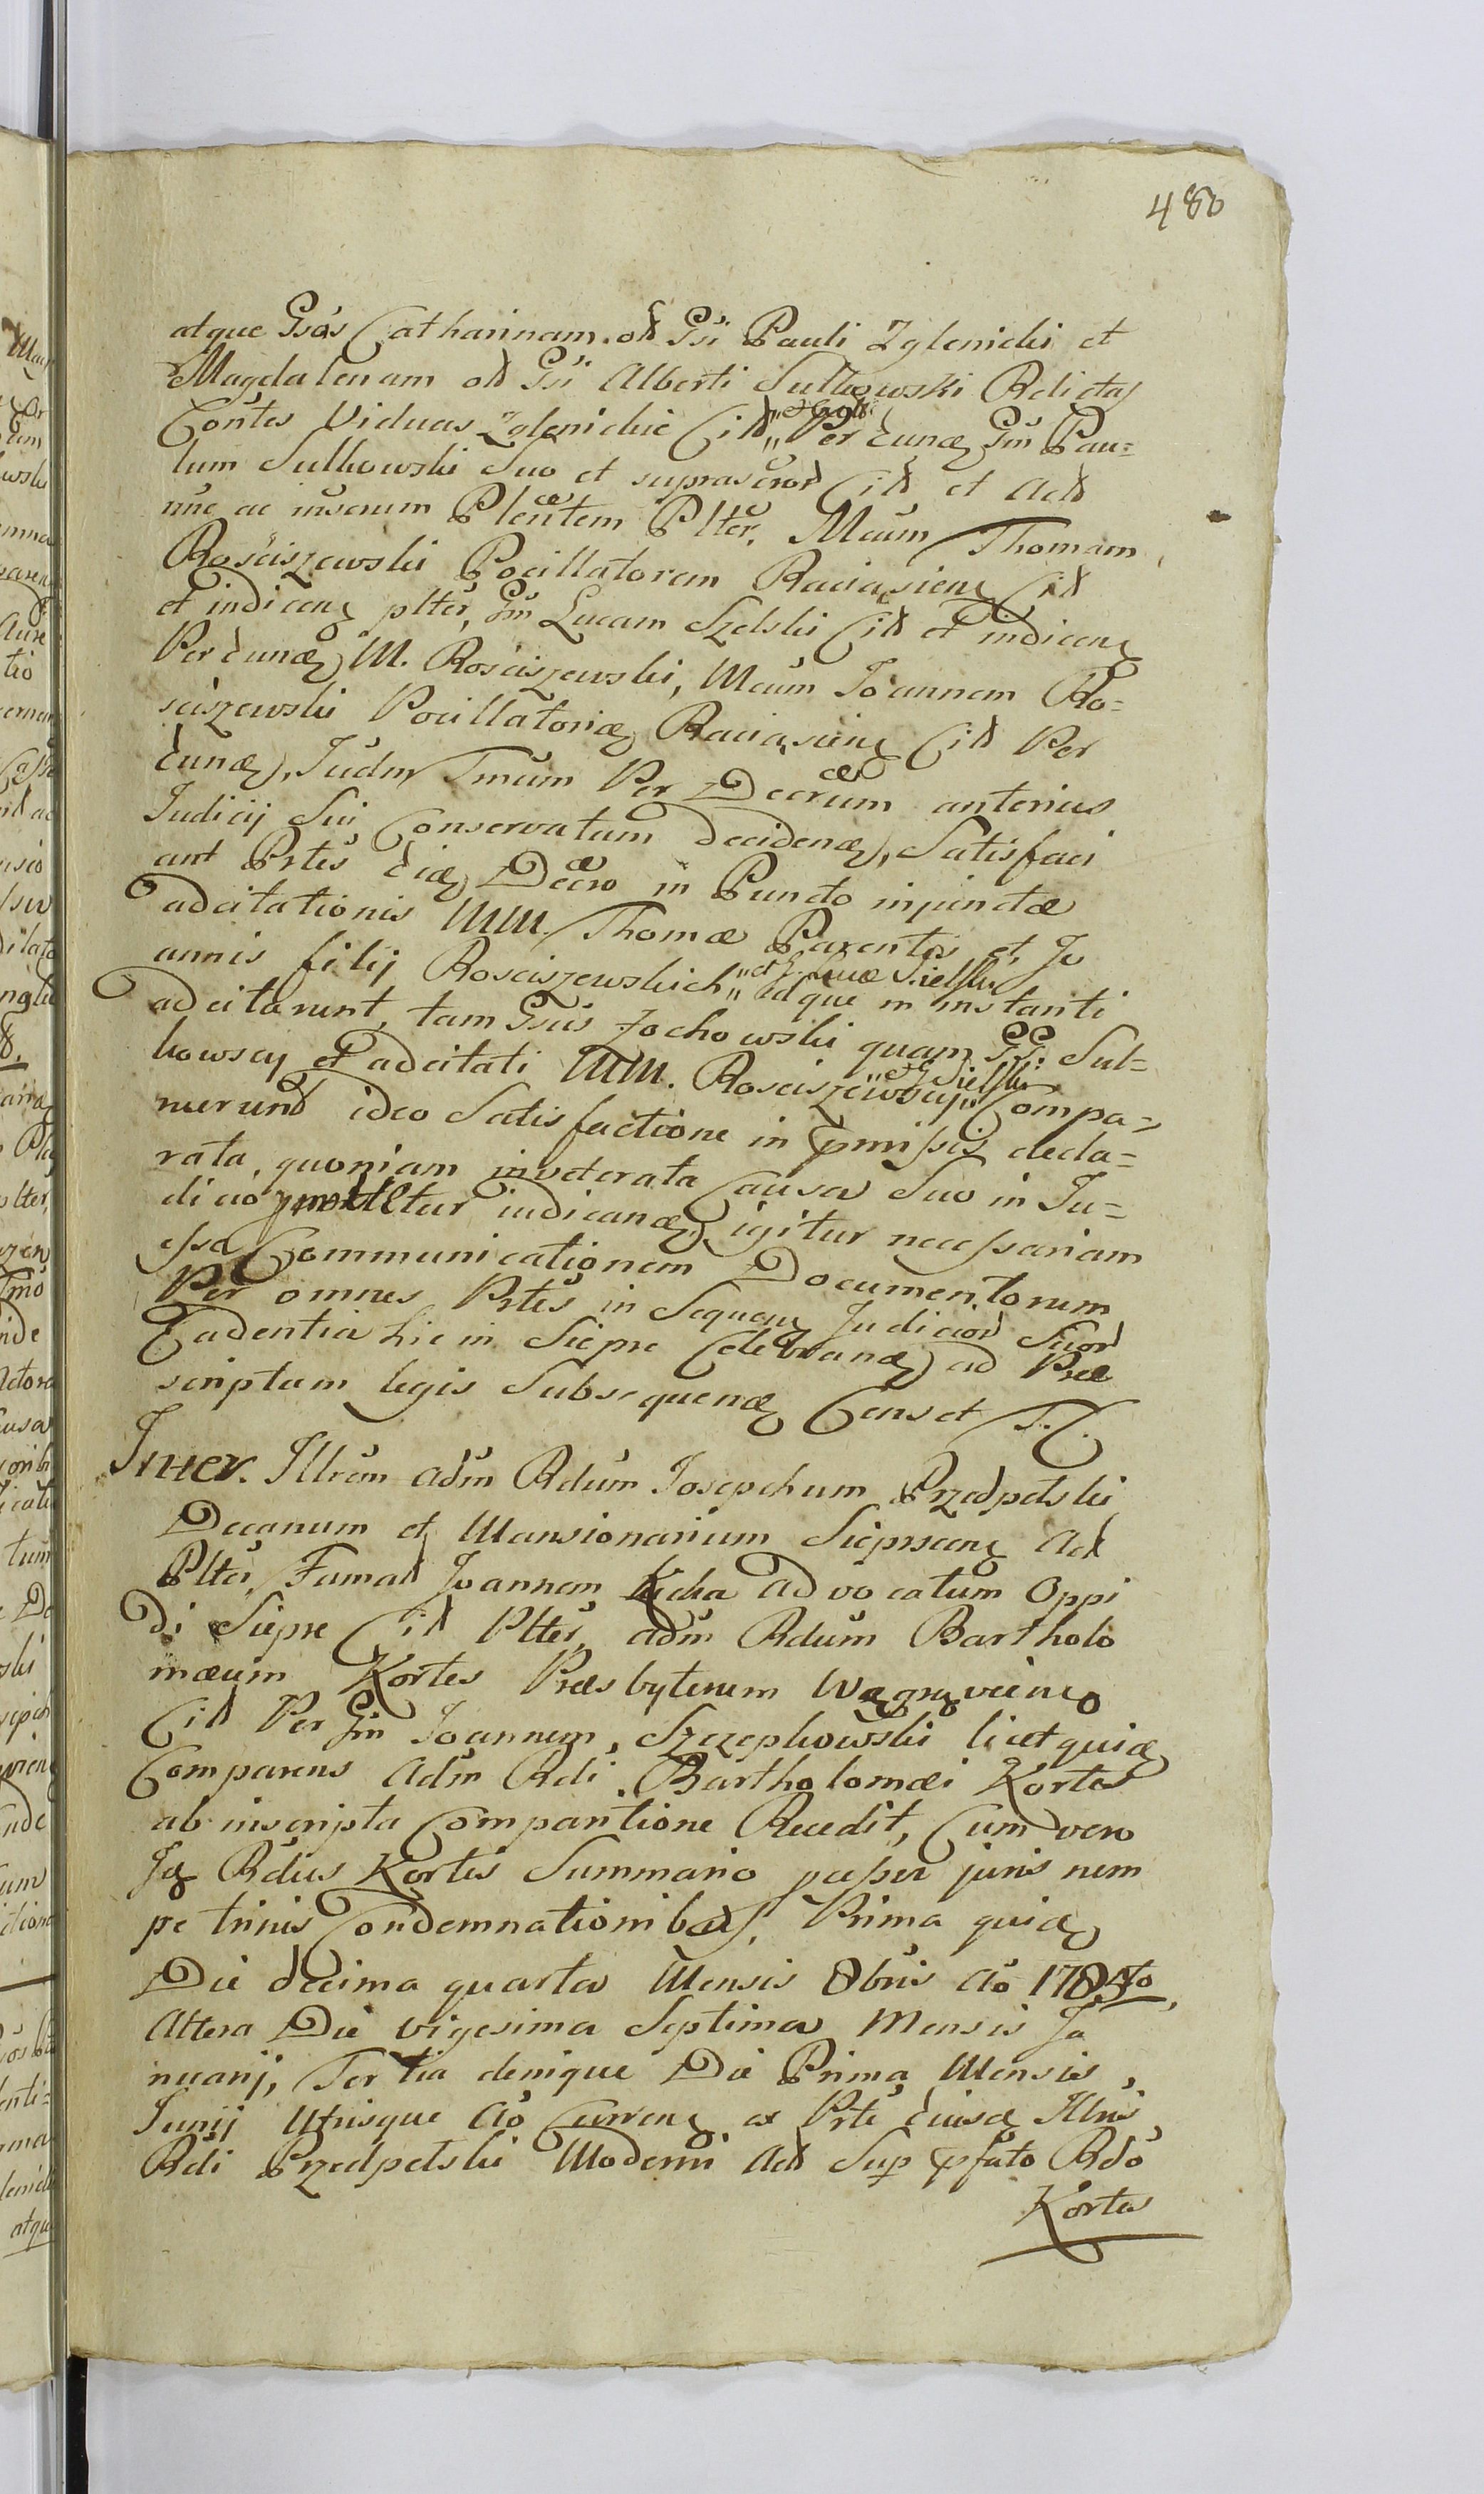 480
atque Gsas Catharinam. od Gsi Pauli Zglenicki et
Magdalenam od Gsi Alberti Sulkowski Relictas
Contes Viduas Zglenickie Citd Per dunaz Gm Pau=
lum Sulkowski Suo et suprascrod Citd et Actd
nuc ac inserum Plentem Plter. Mcum Thomam
Rościszewski Pocillatorem Raciasienz Citd
et indicenz plter, Gm Lucam Szelski Citd et indicenz
Per dunaz M. Rościszewski, Mcum Joannem Ro=
sciszewski Pocillatoriaz Raciasienz Citd Per
dunaz, Judm Tmum Per Decrum anterius
Judicij Sui Conservatum decidenaz, Satisfaci
ant Prtes diaz Decro in Puncto injunctæ
adcitationis MM. Thomæ Parentis et Jo
annis filij Rosciszewskich „et G Lucæ Sielski„ idque in instanti
adcitarunt, tam Gsus Zochowski quam GG: Sul=
kowscy et adcitati MM. Rosciszewscy „et G Sielski„ Compa=
ruerund ideo Satisfactione in pmissis decla=
rata, quoniam inveterata Causa Suo in Ju=
dicio iudicanaz, igitur necessariam
esse Communicationem Documentorum
Per omnes Prtes in Sequenz Judiciord Suord
Cadentia hic in Siepre Celebranaz ad Præ
scriptum legis Subsequenaz Censet T. T.
Inter. Illrem adm Rdum Josephum Przedpelski
Decanum et Mansionarium Sieprscenz Actd
Plter, Famatd Joannem Kicka advocatum Oppi
di Siepre Citd Plter, adm Rdum Bartholo
mæum Kortes Præsbyterum
Citd Per Gm Joannem Szczepkowski licet quiaz
Comparens adm Rdi Bartholomæi Kortes
ab inscripta Comparitione Recedit, Cum vero
Jz Rdus Kortes Summario passu juris nem
pe trinis Condemnationibus, Prima quiaz
Die decima quarta Mensis 8bris Ao
Altera Die vigesima Septima Mensis Ja
nuarij, Tertia denique Die Prima Mensis
Junij Utrisque Ao Currenz ex Prte Illris
Rdi Przedpelski Moderni Actd Sup pfato Rdo
Kortes